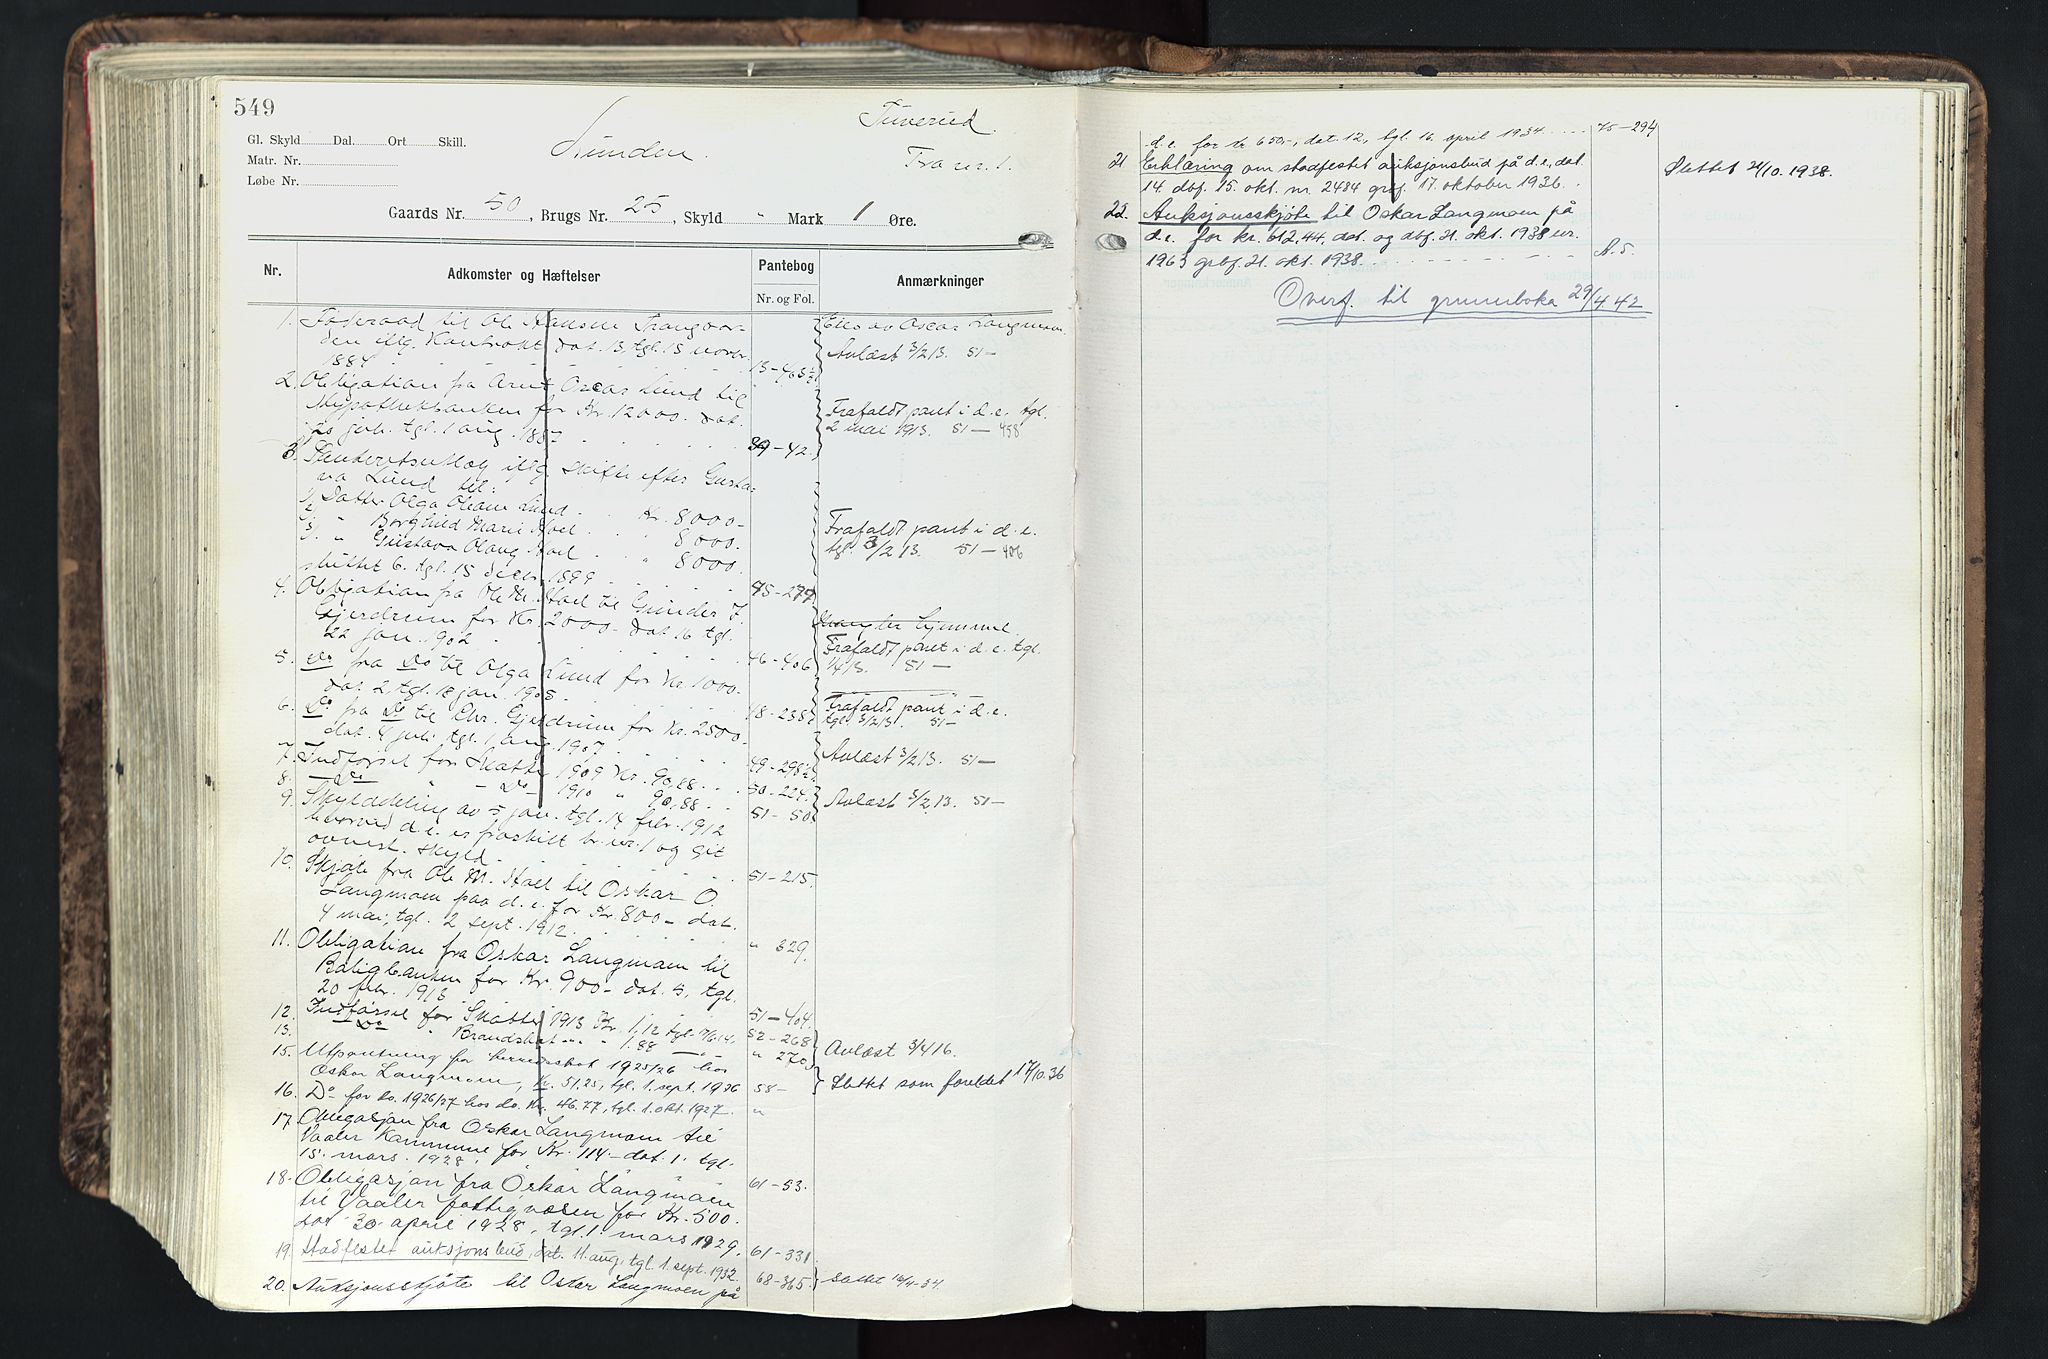 549
Gl. Skyld Dal. Ort Skill.
Lunden. Tuverud.
Matr. Nr. Fra nr. 1.
Løbe Nr.
Gaards Nr. 50, Brugs Nr. 25, Skyld " Mark 1 Øre.
Nr. Adkomster og Hæftelser Pantebog Anmærkninger
Nr. og Fol.
1. Føderaad til Ole Hansen
den iflg. Kontrakt dat. 13, tgl. 15 novbr.
1884 13-463½
Eies av Oscar Langmoen
Avlæst 3/2 13. 51-
2. Obligation fra Arnt Oscar Lund til
Hypothekbanken for Kr. 12000. dat.
20 juli, tgl. 1 aug. 1887 39-42.
Frafaldt pant i d.e. tgl.
2 mai 1913. 51-458
3. iflg. Skifte efter Gusta-
va Lund til:
1, Datter Olga Oleane Lund Kr. 8000-
2, " Borghild Marie Hoel " 8000.
3, " Gustava Olaug Hoel " 8000.
sluttet 6. tgl. 15 decbr. 1899 45-279.
Frafaldt pant i d.e.
tgl. 3/2 13. 51-406
4. Obligation fra Ole M. Hoel til Gunder J.
Gjerdrum for Kr. 2000- dat. 16 tgl.
22 jan. 1902 46-406
Mangler hjemmel.
Frafaldt pant i d.e. tgl.
1/4 13. 51-
5. Do fra Do til Olga Lund for Kr. 1000-
dat. 2, tgl. 18 jan. 1905. 48-235
Frafaldt pant i d.e.
tgl. 3/2 13. 51-
6. Do fra Do til Chr. Gjerdrum for Kr. 2500-
dat. 4 juli tgl. 1 aug. 1907. 49-298½
Avlæst 3/2 13. 51-
7. Indførsel for Skatter 1909 Kr. 90,88 50-224.
8. Do " Do 1910 " 90,88 51-50
Avlæst 3/2 13. 51-
9. Skylddeling av 5 jan. tgl. 14 febr. 1912
hvorved d.e. er fraskilt br. nr. 1 og git
ovenst. skyld. 51-215.
10. Skjøte fra Ole M. Hoel til Oskar O.
Langmoen paa d.e. for Kr. 800- dat.
4 mai, tgl. 2 sept. 1912. " 329.
11. Obligation fra Oskar Langmoen til
Boligbanken for Kr. 900- dat. 5, tgl.
20 febr. 1913 51-404.
12. Indførsel for Skatter 1913 Kr. 1,12 tgl. 7/6 14. 52-268
13. Do " Brandskat " " 1.88 " 270
Avlæst 3/4 16.
15. Utpantning for herredsskat 1925/26 hos
Oskar Langmoen, Kr. 51,25, tgl. 1. sept. 1926 58-
Slettet som foreldet 17/10.36
16. Do for do. 1926/27 hos do. Kr. 46.77, tgl. 1. okt. 1927. "
17. Obligasjon fra Oskar Langmoen til
Vaaler Kommune for Kr. 114- dat. 1. tgl.
15. mars. 1928. 61-53.
18. Obligasjon fra Oskar Langmoen
til Vaaler fattigvæsen for Kr. 500.
dat 30 april 1928, tgl. 1. mars 1929. 61-331
19. Stadfestet auksjonsbud, dat. 11. aug, tgl. 1. sept. 1932. 68-365.
slettet 16/4-34.
20. Auksjonsskjøte til Oskar Langmoen på
d.e. for kr 650-, dat. 12, tgl. 16. april 1934 75-294
21 Erklæring om stadfestet auksjonsbud på d.e., dat.
14. dbf. 15. okt. nr. 2484 grbf. 17. oktober 1936.
Slettet 21/10.1938.
22. Auksjonsskjøte til Oskar Langmoen på
d.e. for kr. 612,44, dat. og dbf. 21. okt. 1938 nr.
1963 grbf. 21. okt. 1938. A.5.
Overf. til grunnboka 29/4.42